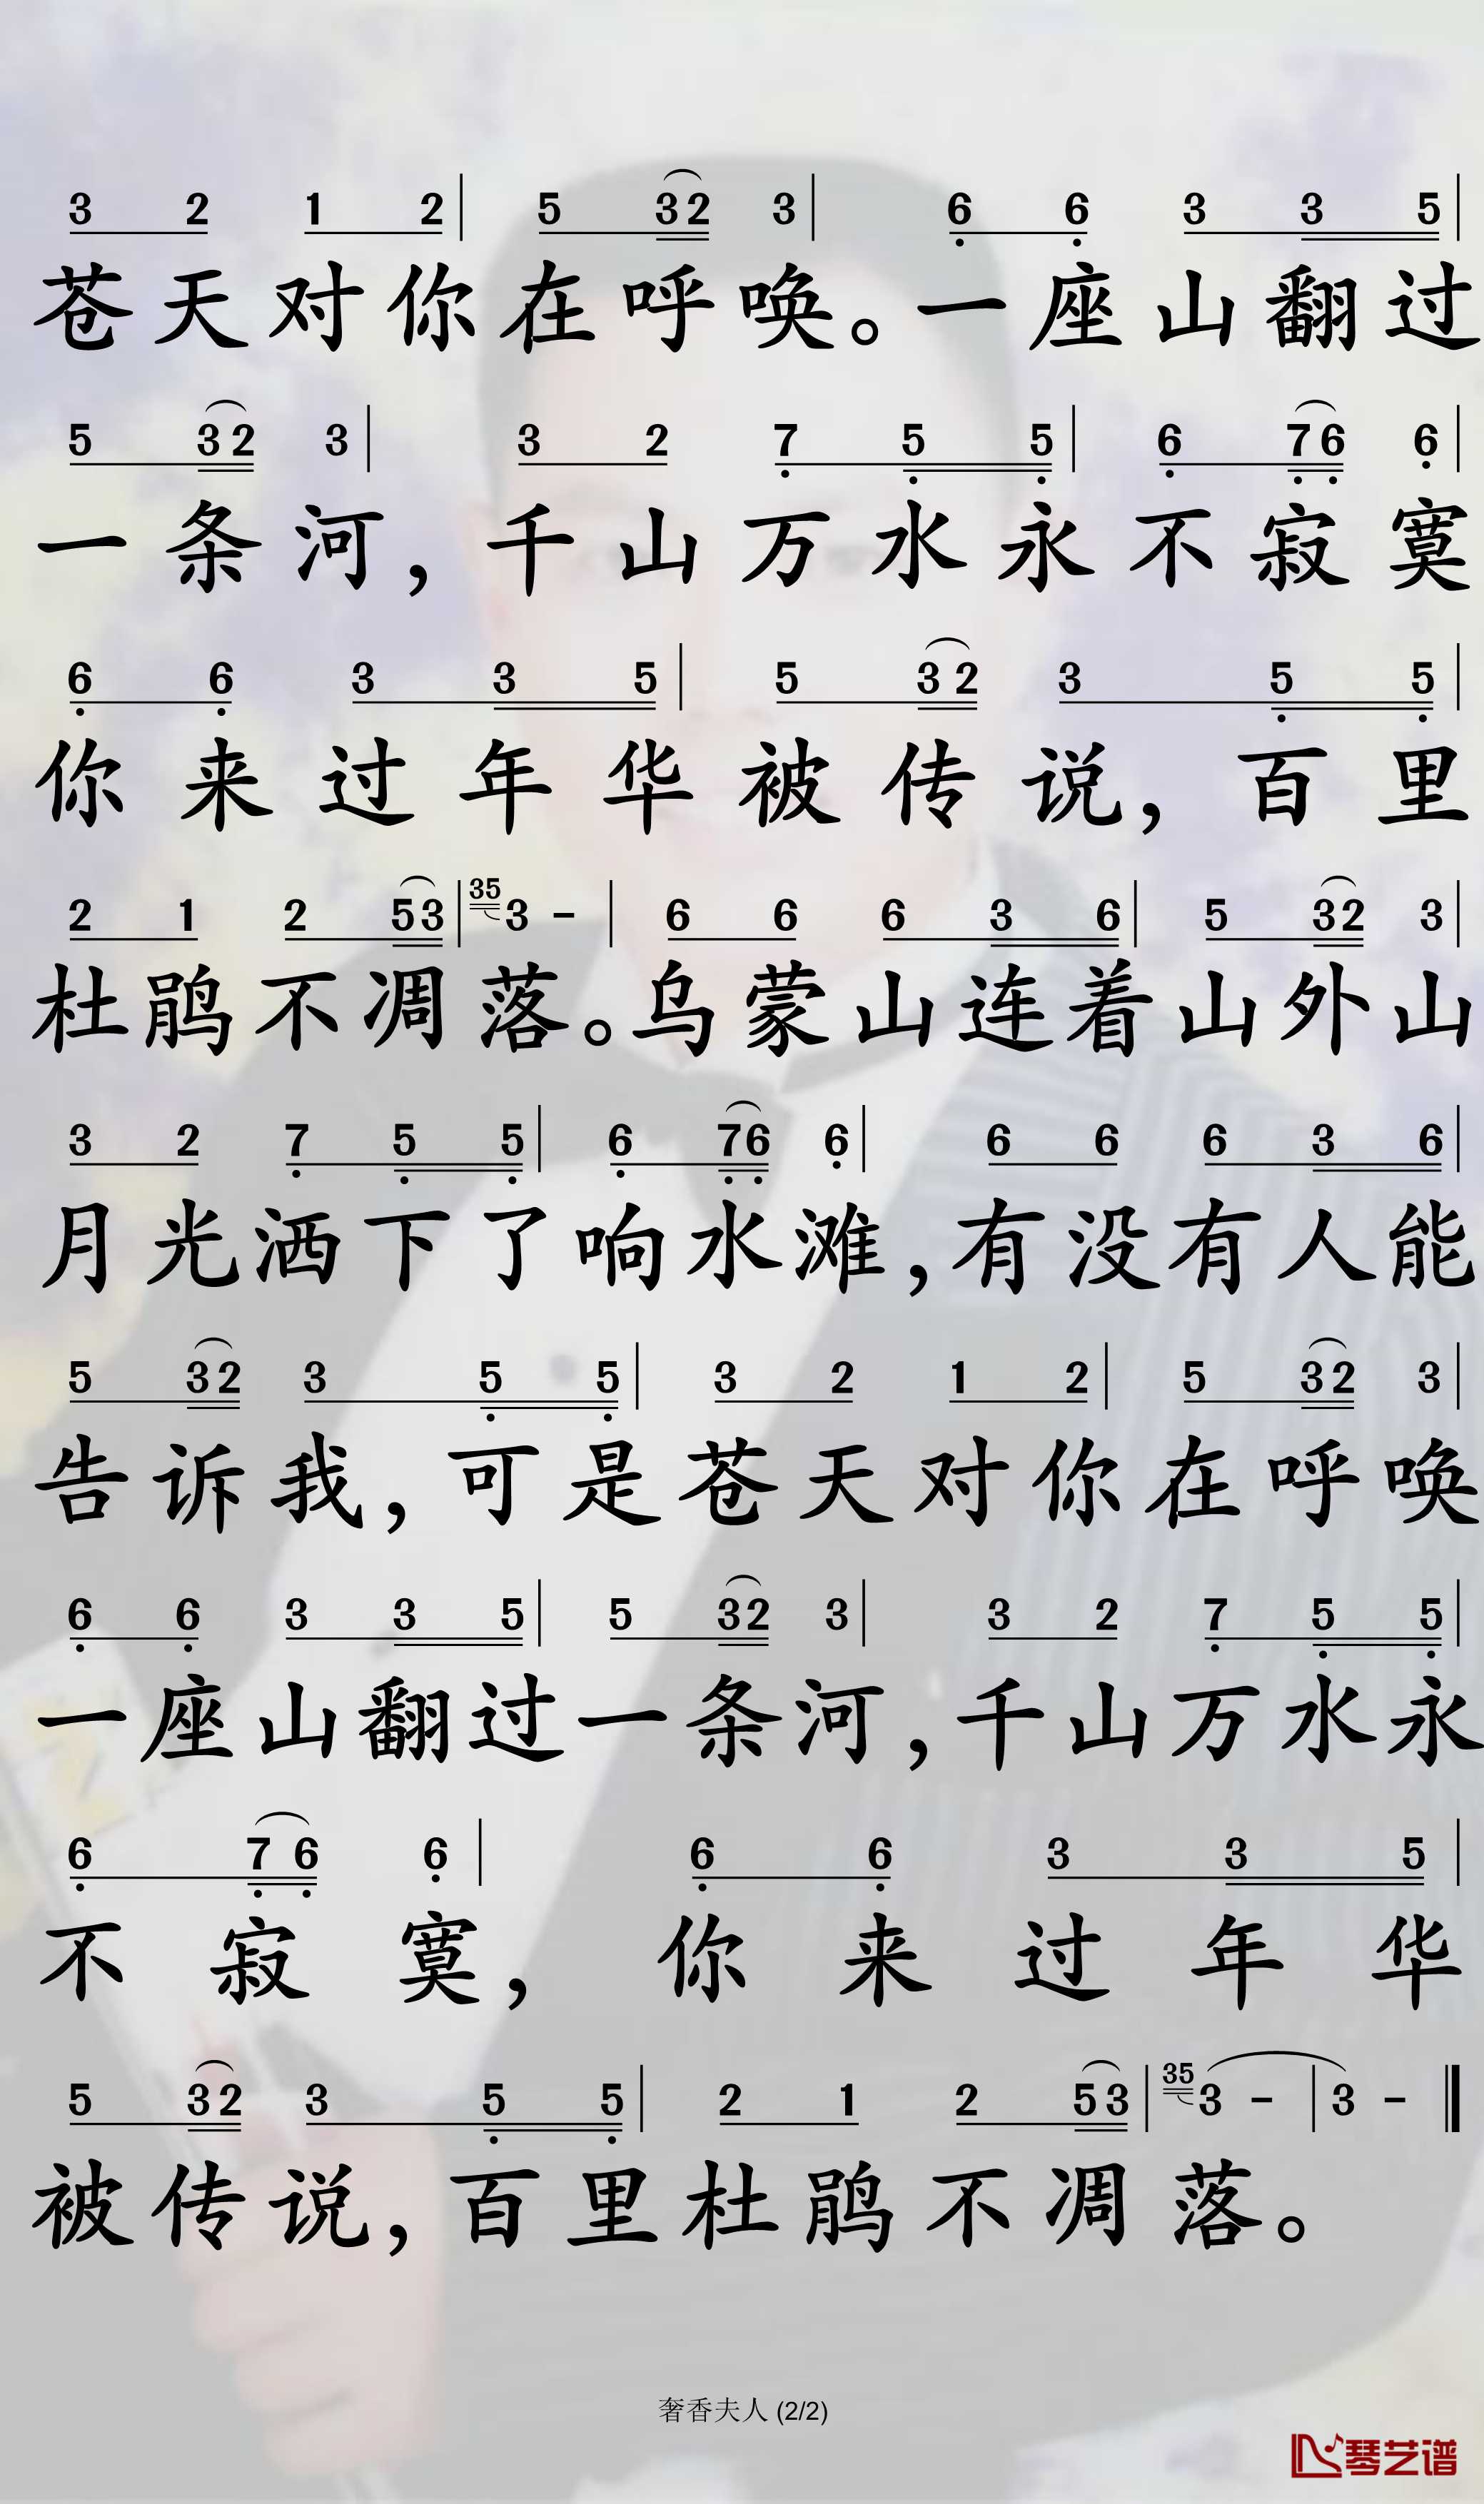 3 2 1 2 | 5 32 3 | 6 6 3 3 5 |
苍天对你在呼唤。一座山翻过
5 32 3 | 3 2 7 5 5 | 6 76 6 |
一条河，千山万水永不寂寞
6 6 3 3 5 | 5 32 3 5 5 |
你来过年华被传说，百里
2 1 2 53 | 35 3 - | 6 6 6 3 6 | 5 32 3 |
杜鹃不凋落。乌蒙山连着山外山
3 2 7 5 5 | 6 76 6 | 6 6 6 3 6 |
月光洒下了响水滩，有没有人能
5 32 3 5 5 | 3 2 1 2 | 5 32 3 |
告诉我，可是苍天对你在呼唤
6 6 3 3 5 | 5 32 3 | 3 2 7 5 5 |
一座山翻过一条河，千山万水永
6 76 6 | 6 6 3 3 5 |
不寂寞，你来过年华
5 32 3 5 5 | 2 1 2 53 | 35 3 - | 3 - ‖
被传说，百里杜鹃不凋落。
奢香夫人 (2/2)
琴艺谱